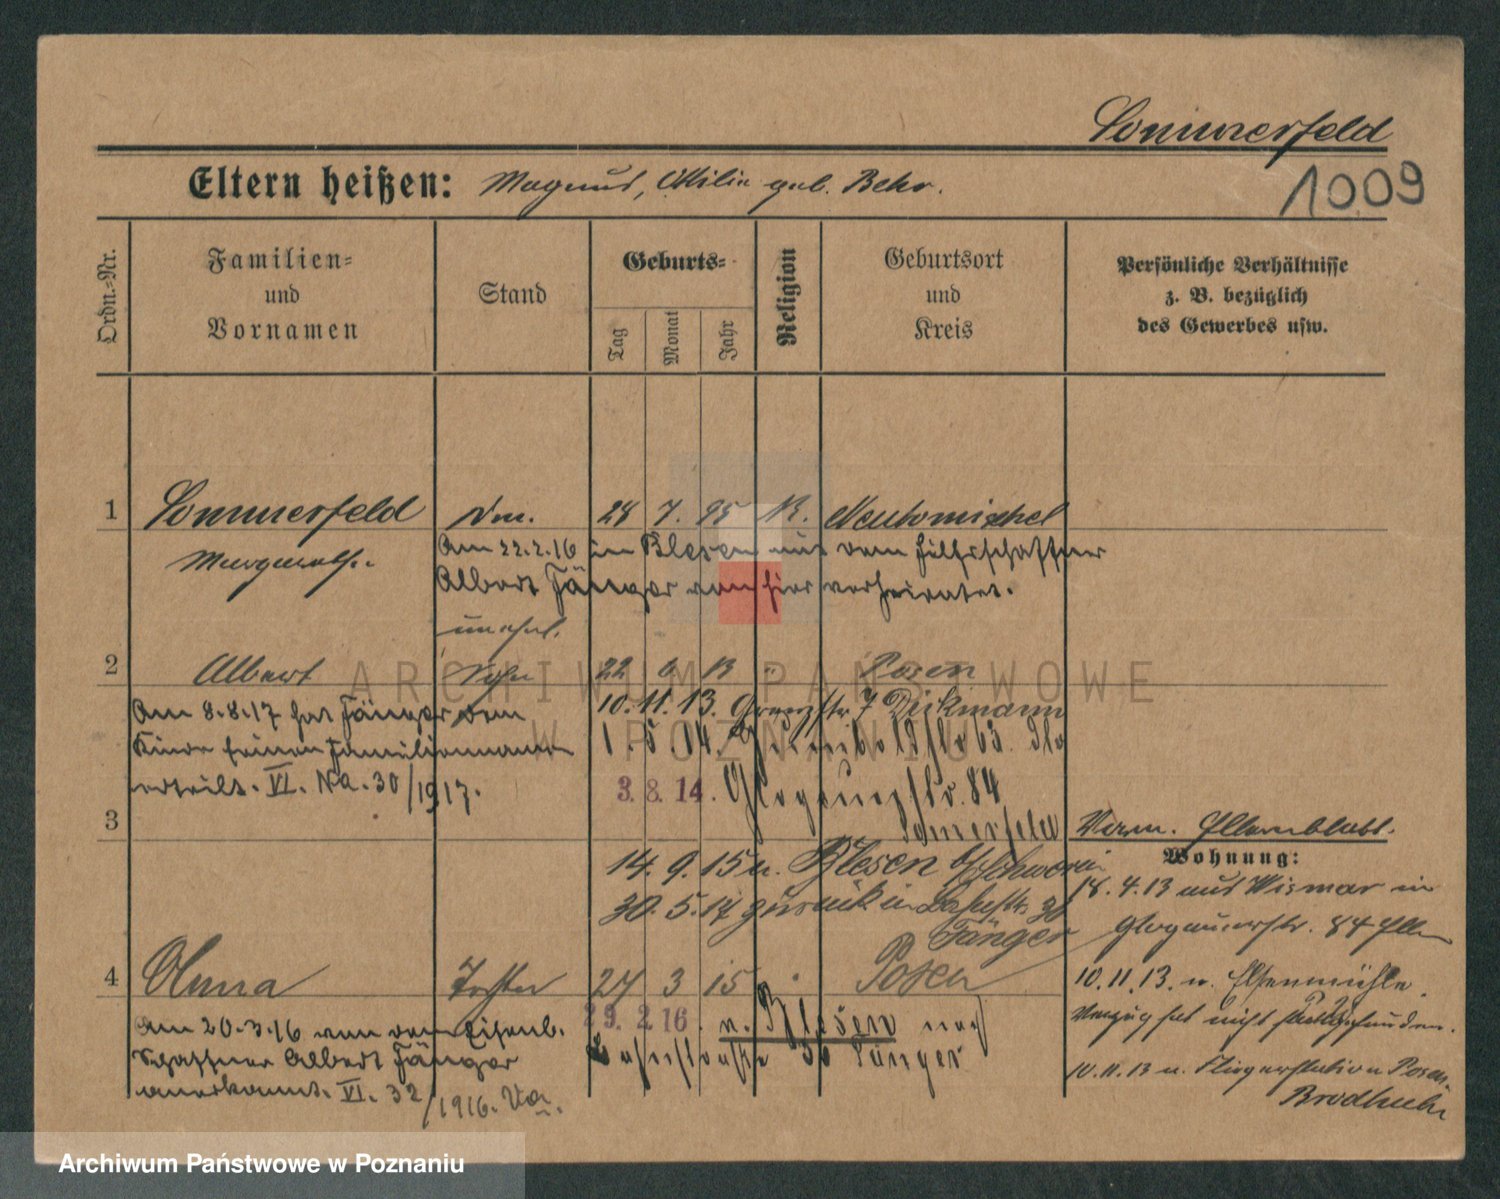 Sommerfeld
1009
Eltern heißen: Magnus, Ottilie geb. Behr.
Ordn.-Nr.
Familien-
und
Vornamen
Stand
Geburts-
Tag
Monat
Jahr
Religion
Geburtsort
und
Kreis
Persönliche Verhältnisse
z. B. bezüglich
des Gewerbes usw.
1 Sommerfeld 7. 95 K. Neutomischel
Margarethe
Am 22.2.16 in Blesen mit dem Hilfsschaffner
Albert Fänger von hier verheiratet.
unehel.
2 Albert Sohn 22 13 " Posen
Am 8.8.17 hat Fänger dem
Kinde seinen Familiennamen
erteilt. VI. Na. 30/1917.
10. 11. 13. Grenzstr. 7 Dickmann
1. 5. 14.
3. 8. 14. Glogauerstr. 84
Sommerfeld
3
14. 9. 15 n. Blesen b/Schwerin
30. 5. 17 zurück in 36
Fänger
Verm. Elternblatt.
Wohnung:
18. 4. 13 aus Wismar in
Glogauerstr. 84
10. 11. 13. n.
Verzug hat nicht stattgefunden.
10. 11. 13 n. Posen
4 Tochter 24 3 15 " Posen
Am 20.3.16 von dem Eisenb.
Schaffner Albert Fänger
anerkannt. VI. 32/1916.
29. 2. 16. v. Blesen nach
36 Fänger
ARCHIWUM PAŃSTWOWE
W POZNANIU
Archiwum Państwowe w Poznaniu